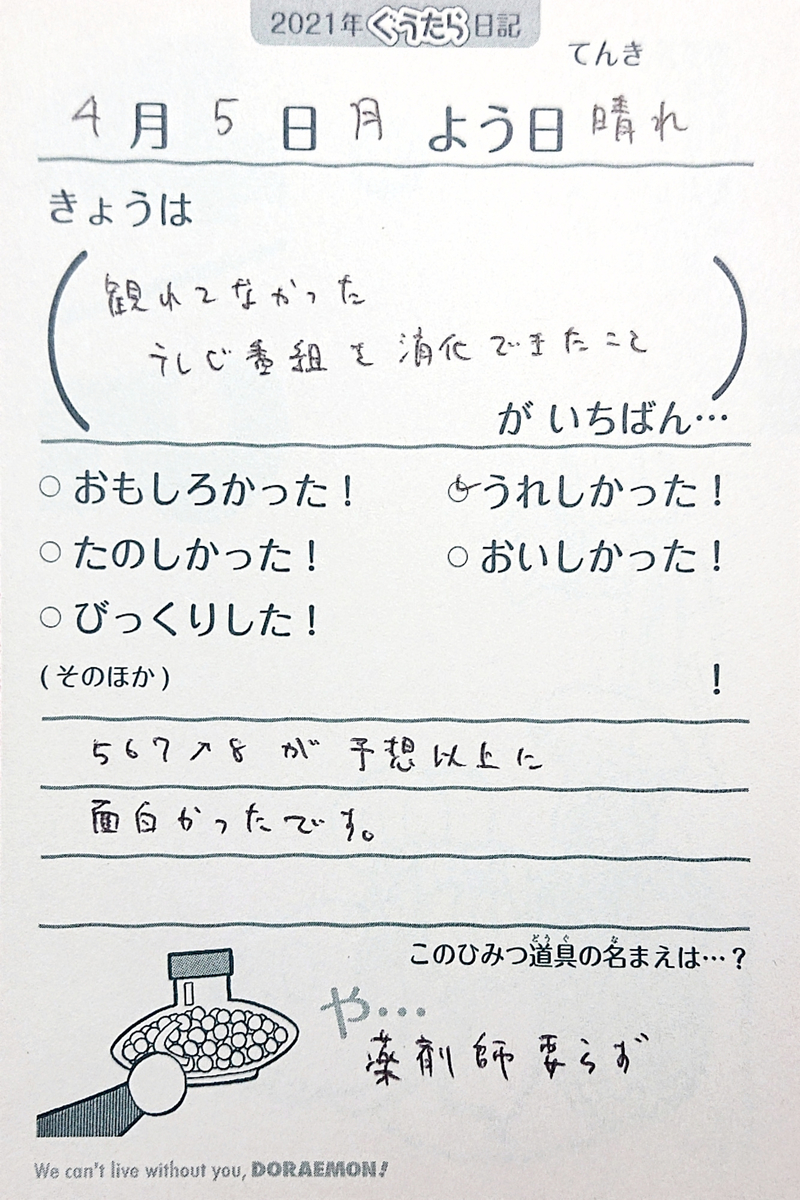 2021年ぐうたら日記
てんき
4月5日月よう日晴れ
きょうは
観れてなかった
テレビ番組を消化できたこと
が いちばん…
○おもしろかった！ ○うれしかった！
○たのしかった！ ○おいしかった！
○びっくりした！
(そのほか) ！
567↗8が予想以上に
面白かったです。
このひみつ道具の名まえは…？
や…
薬剤師要らず
We can't live without you, DORAEMON!